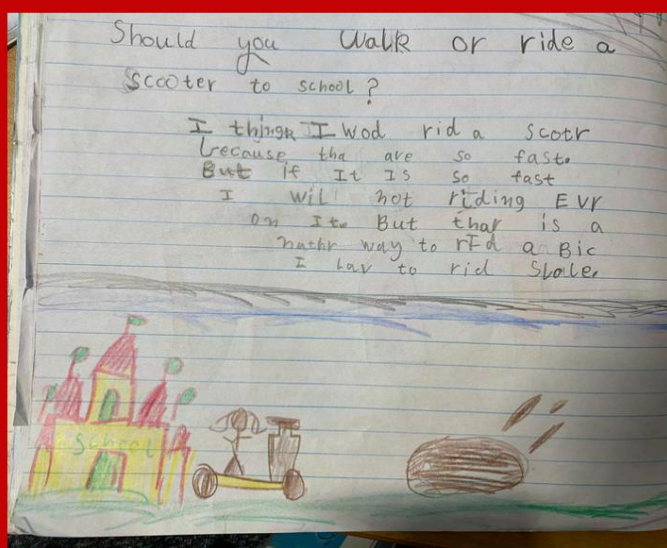 Should you Walk or ride a
scooter to school?
I thingk I wod rid a scotr
because tha are so fast.
But if It Is so fast
I wil not riding Evr
on It. But thar is a
nathr way to rId a Bic
I lav to rid Slole.
School